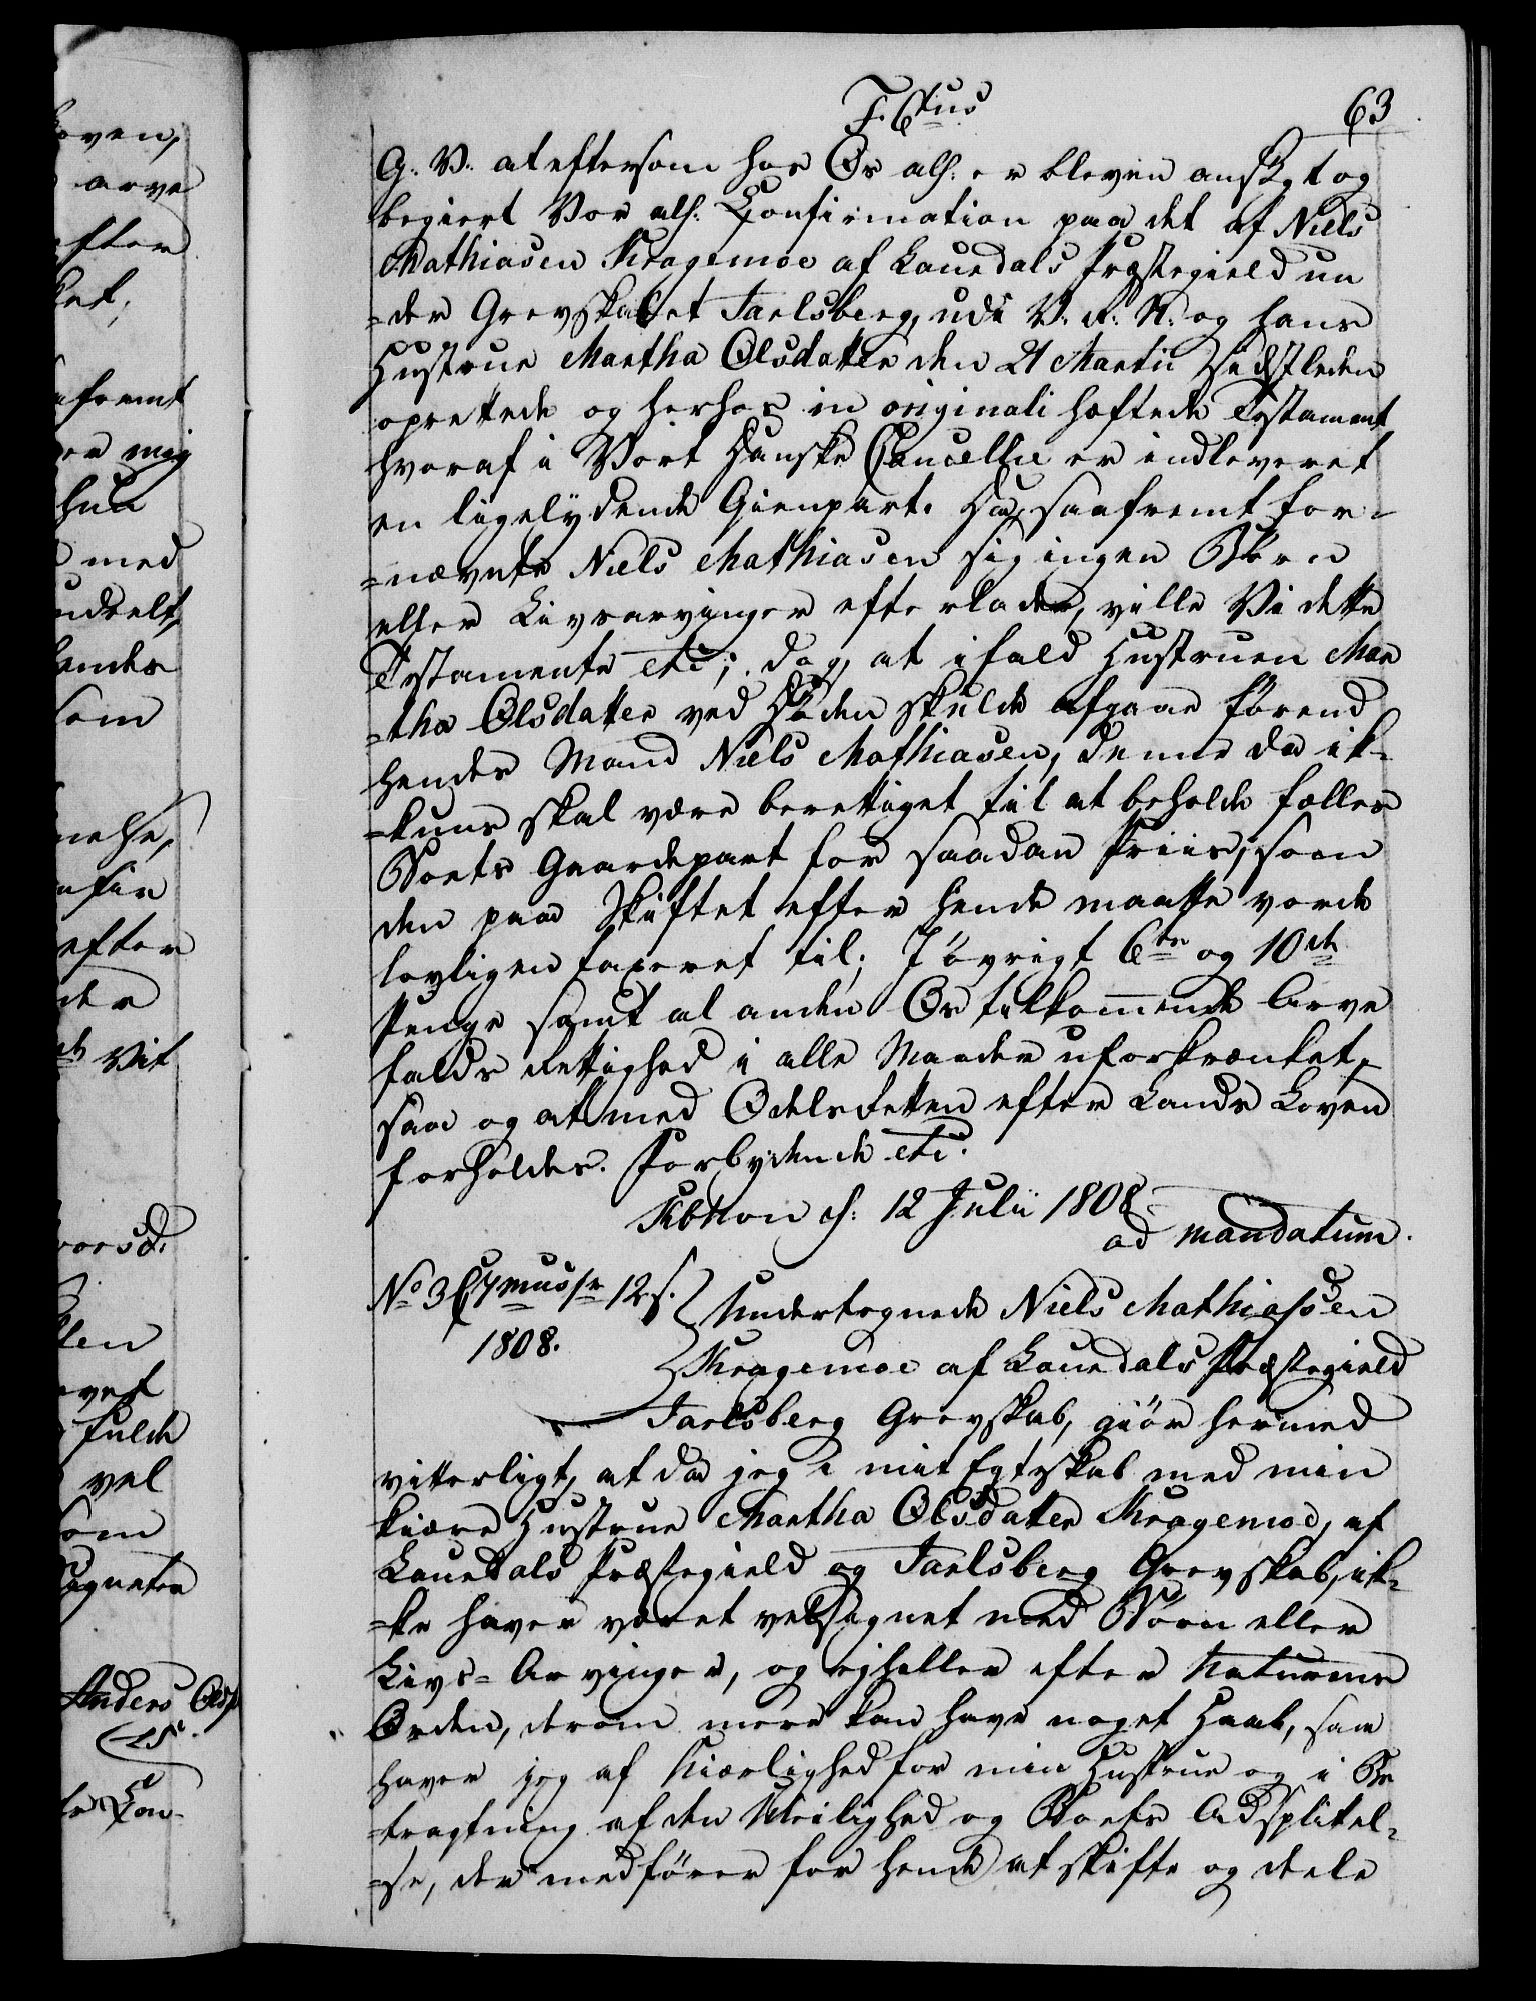 F. 6tus
63
G. V. at eftersom hos Os allh: er bleven ansøgt og
begiert Vor allh: Confirmation paa det af Niels
Mathiasen Kragemoe af Lauedals Præstegield un
=der Grevskabet Jarlsberg, udi V. R. N: og hans
Hustrue Martha Olsdatter den 21 Martii sidstleden
oprettede og herhos in originali hæftede Testament
hvoraf i Vort Danske Cancellie er indleveret
en ligelydende Gienpart. Da, saafremt for-
=nævnte Niels Mathiasen sig ingen Børn
eller Livsarvinger efterlader, ville Vi dette
Testamente etc; dog, at ifald Hustruen Mar
=tha Olsdatter ved Døden skulde afgaae førend
hendes Mand Niels Mathiasen, denne da ik-
=kuns skal være berettiget til at beholde fælles
Boets Gaardepart for saadan Priis, som
den paa Skiftet efter hende maatte vorde
lovligen taxeret til; J øvrigt 6te og 10de
Penge samt al anden Os tilkommende Arve
falds Rettighed i alle Maader uforkrænket,
saa og at med Odelsretten efter Lands Loven
forholdes. Forbydende etc.
Kbhavn d: 12 Julii 1808
ad mandatum.
No 3 C7mus/r 12 s.
1808.
Undertegnede Niels Mathiassen
Kragemoe af Lauedals Præstegield
Jarlsberg Grevskab, giör hermed
vitterligt, at da jeg i mit Egteskab med min
kiære Hustrue Martha Olsdatter Kragemoe, af
Lauedals Præstegield og Jarlsberg Grevskab, ik-
=ke haver været velsignet med Börn eller
Livs=Arvinger, og ejheller efter Naturens
Orden, derom mere kan have noget Haab, saa
haver jeg af Kiærlighed for min Hustrue og i Be
=tragtning af den Uleilighed og Boets Adsplitel-
=se, der medförer for hende at skifte og deele